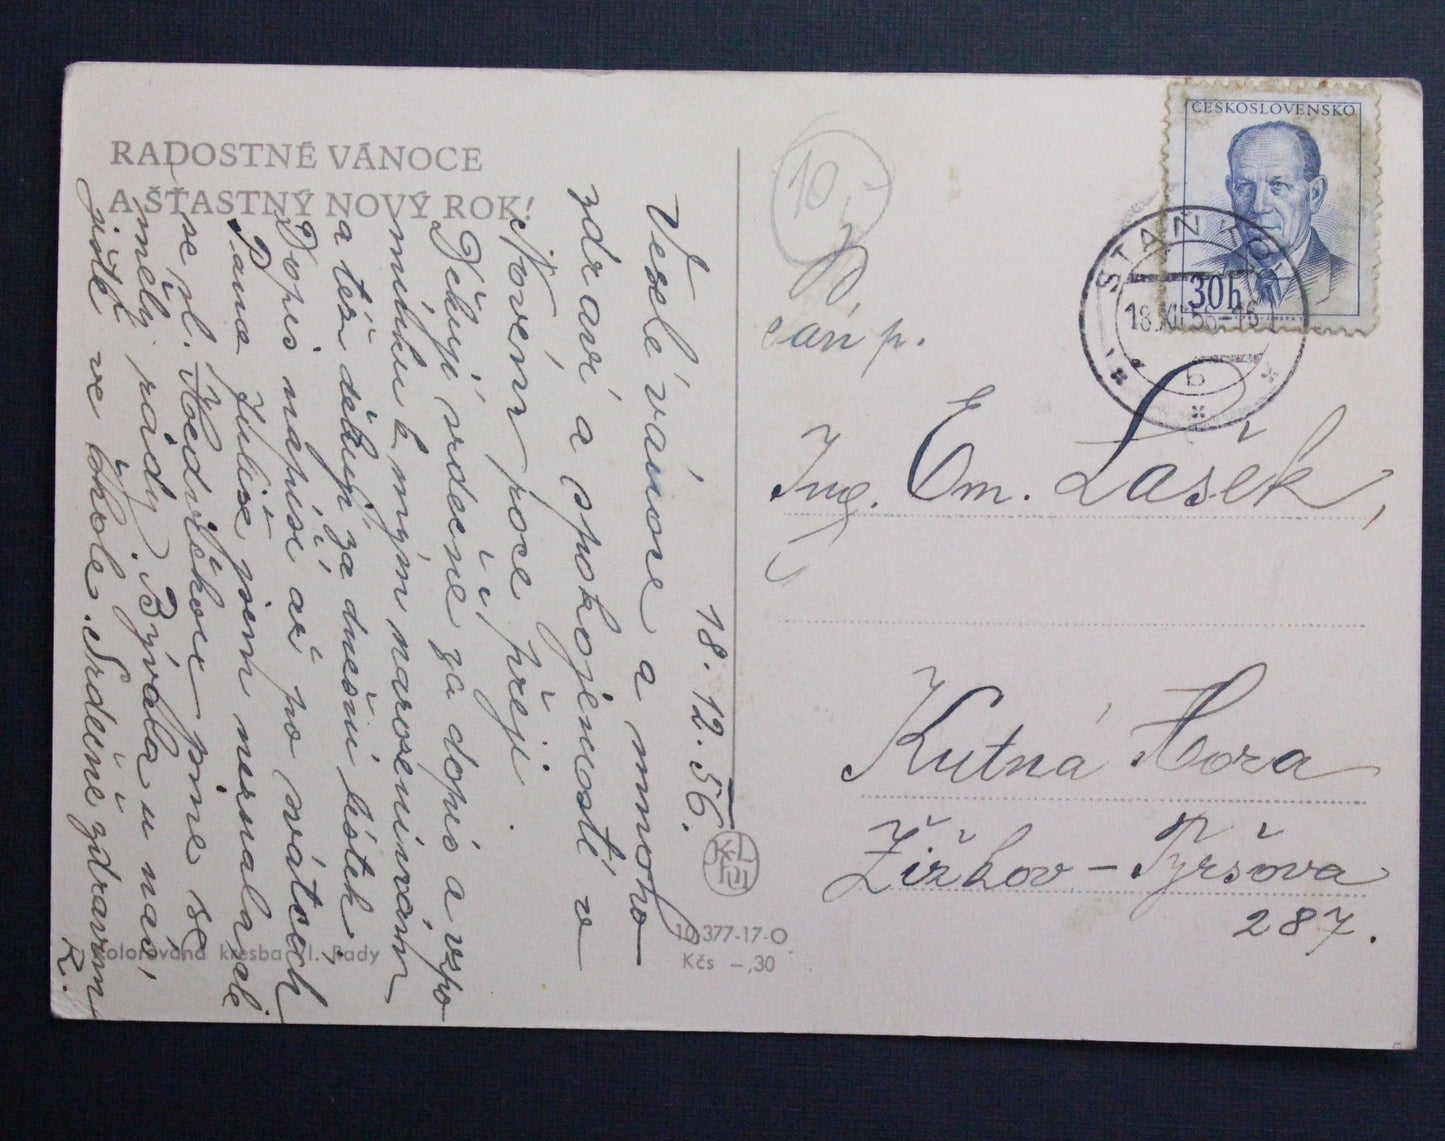 RADOSTNÉ VÁNOCE
A ŠŤASTNÝ NOVÝ ROK!
18. 12. 56.
Veselé vánoce a mnoho
zdraví a spokojenosti v
Novém roce přeji.
Děkuji srdečně za dopis a vzpo
mínku k mým narozeninám
a též děkuji za dnešní lístek.
Dopis napíši až po svátcích
Pana Julíše jsem neznala, ale
se sl. Hedvičkou jsme se
měly rády. Bývala u nás,
ještě ve škole. Srdečně zdravím
R.
Kolorovaná kresba Vl. Rady
10 377-17-O
Kčs –,30
10,-
ČESKOSLOVENSKO
30h
18.XII.56-16
b
Paní p.
Ing. Em. Lašek,
Kutná Hora
Žižkov – Tyršova
287.